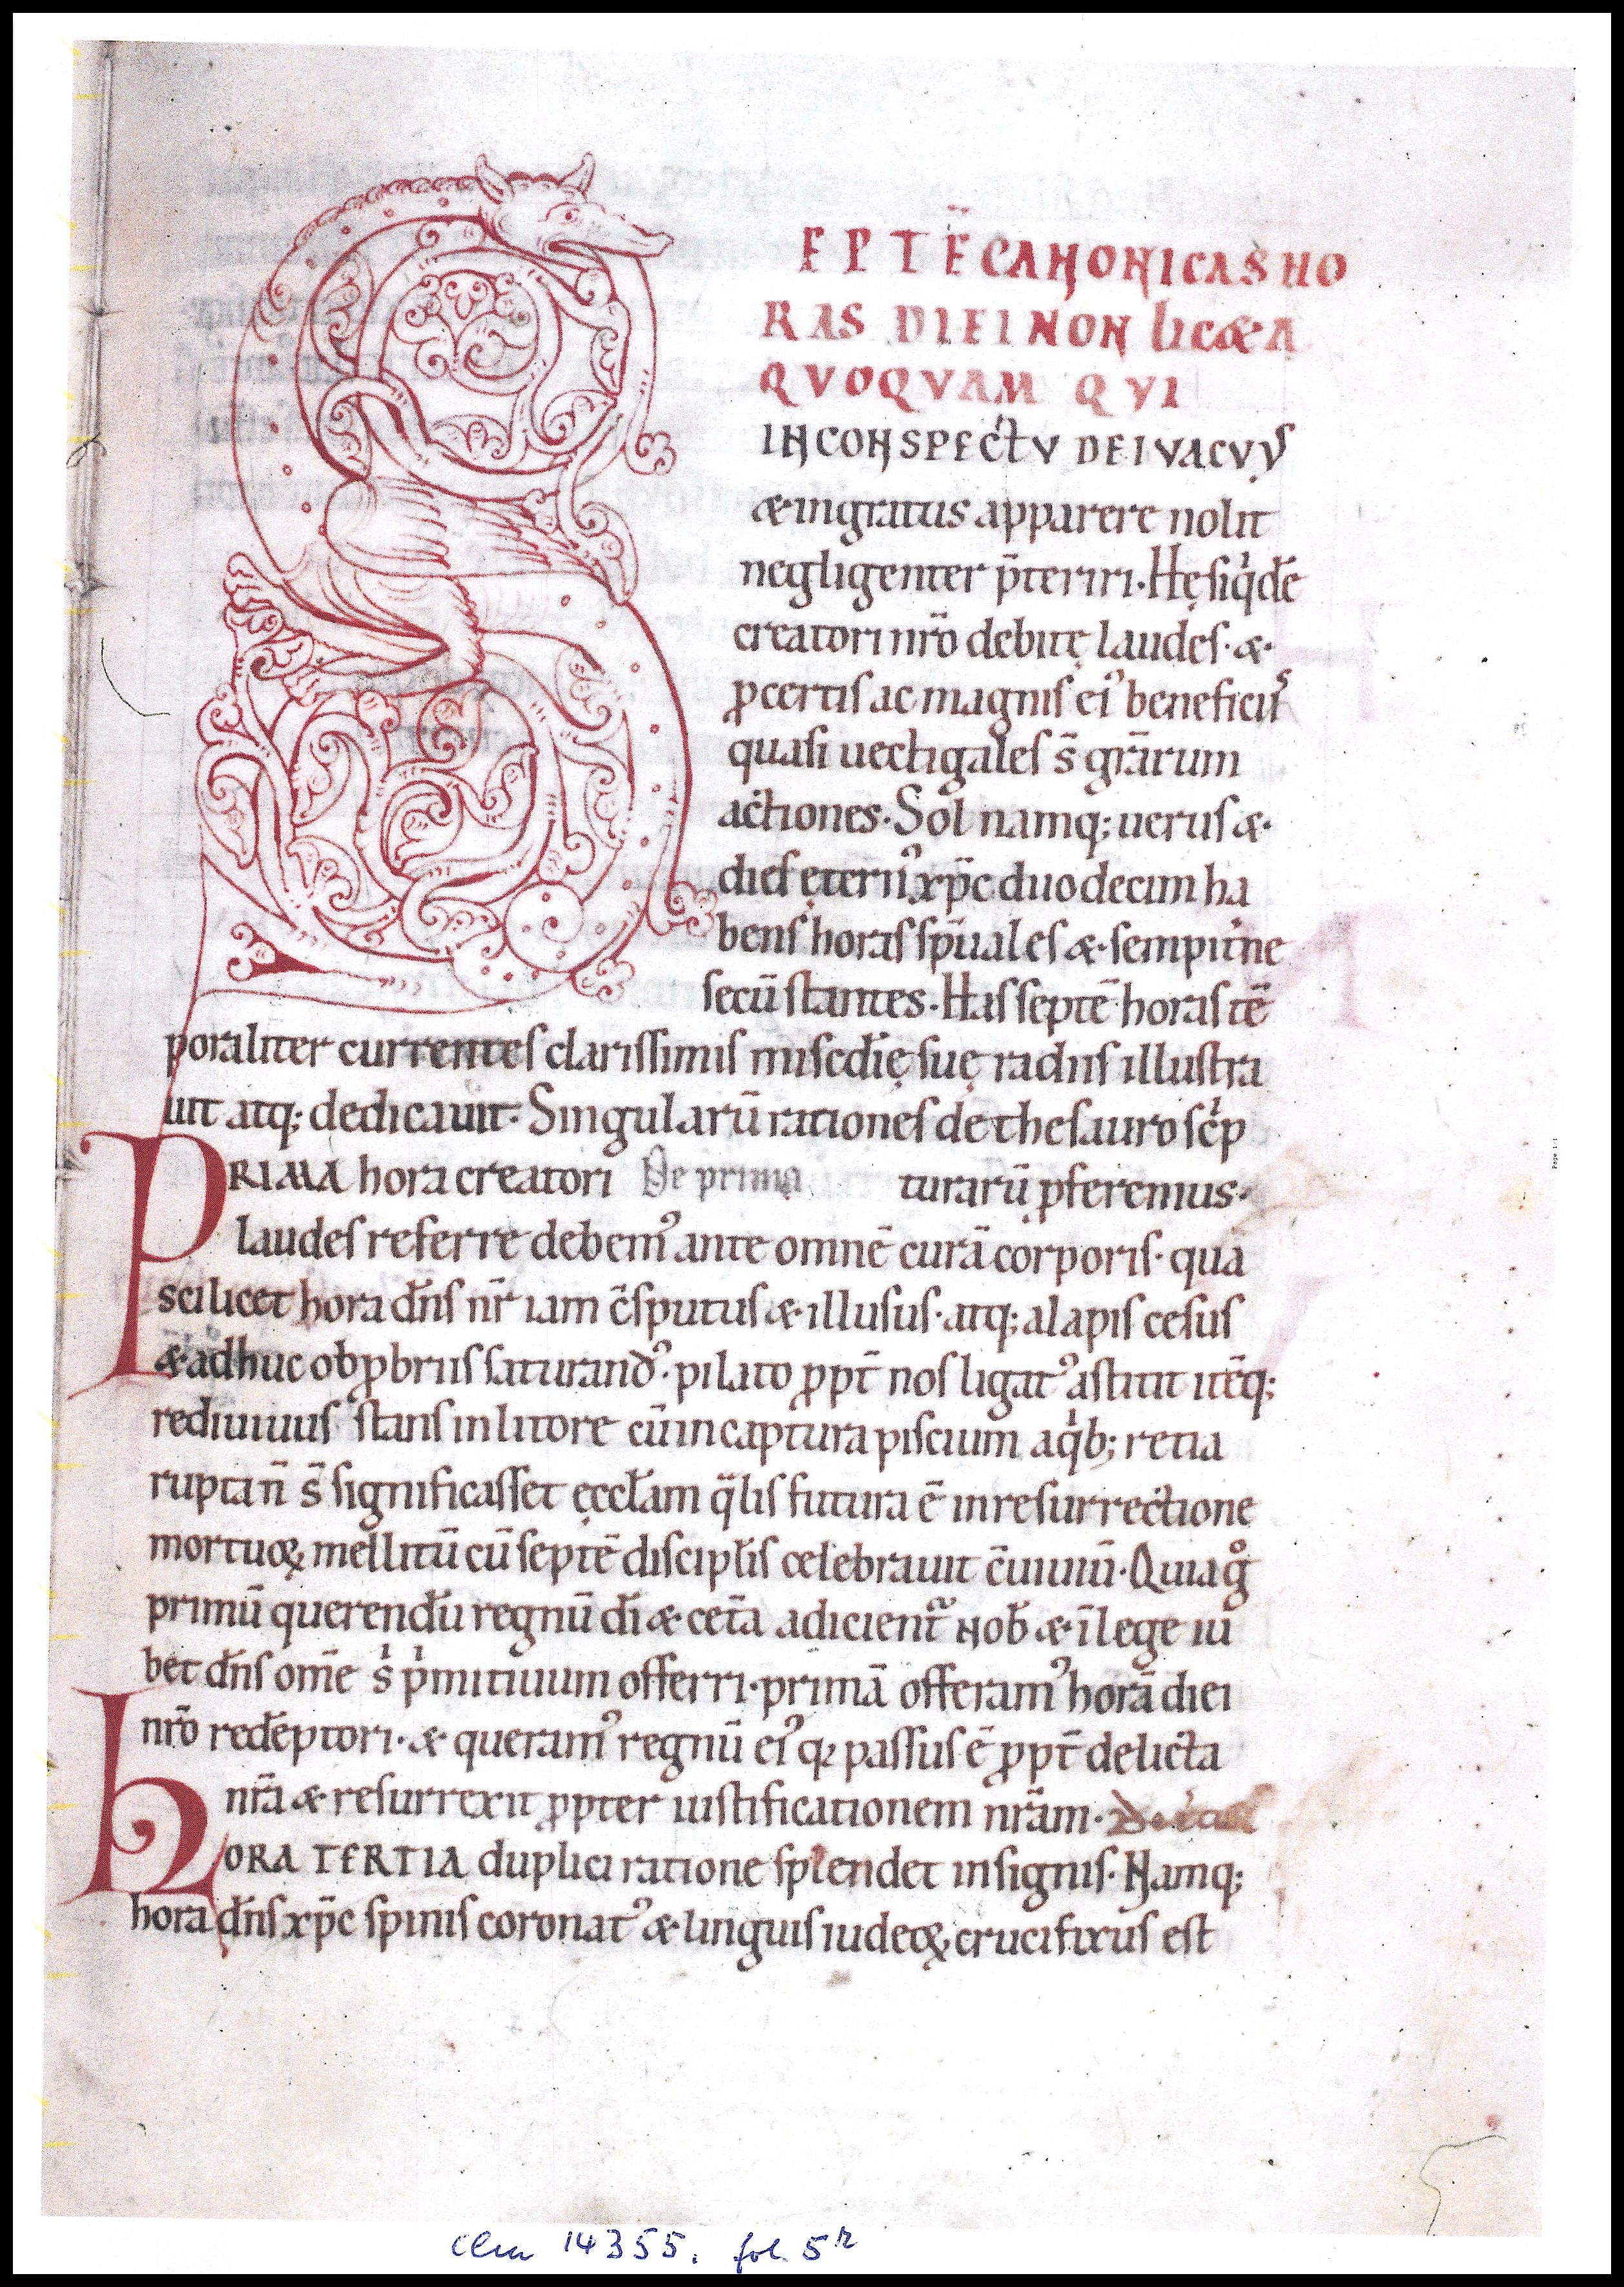 SEPTĒ CANONICAS HO
RAS DIEI NON licæ A
QVOQVAM QVI
IN CONSPECTV DEI VACVVS
& ingratus apparere nolit
negligenter p̄teriri. Hę siqͥdē
creatori nr̄o debitę laudes. &
ꝓ certis ac magnis eiꝰ beneficiis
quasi uectigales s̄ gr̄arum
actiones. Sol namq; uerus &
dies ęternꝰ xp̄c duodecim ha
bens horas sp̄uales & sempit̉ne
secū stantes. Has septē horas tē
poraliter currentes clarissimis misc̄dię suę radiis illustra
uit atq; dedicauit. Singularū rationes de thesauro scͥp
PRIMA hora creatori De prima turarū ꝓferemus.
laudes referre debemꝰ ante omnē curā corporis. qua
scilicet hora dn̄s nr̄ iam c̄sputus & illusus. atq; alapis cesus
& adhuc obꝓbriis saturandꝰ. pilato ꝓpt̄ nos ligatꝰ astitit itēq;
rediuiuus stans in litore cū in captura piscium a qͥb; retia
rupta n̄ s̄ significasset ęccl̄am qͣlis futura ē in resurrectione
mortuoꝝ mellitū cū septē discipl̄is celebrauit c̄uiuiū. Quia gͦ
primū querendū regnū dī & cet̄a adicientᷣ nob̄ & ī lege iu
bet dn̄s om̄e sͥ pͥmitiuum offerri. primā offeramꝰ horā diei
nr̄o redēptori. & queramꝰ regnū eiꝰ qꝫ passus ē ꝓpt̄ delicta
nr̄a & resurrexit ꝓpter iustificationem nr̄am.
HORA TERTIA duplici ratione splendet insignis. Namq;
hora dn̄s xp̄c spinis coronatꝰ & linguis iudeoꝝ crucifixus est
Clm 14355. fol. 5r